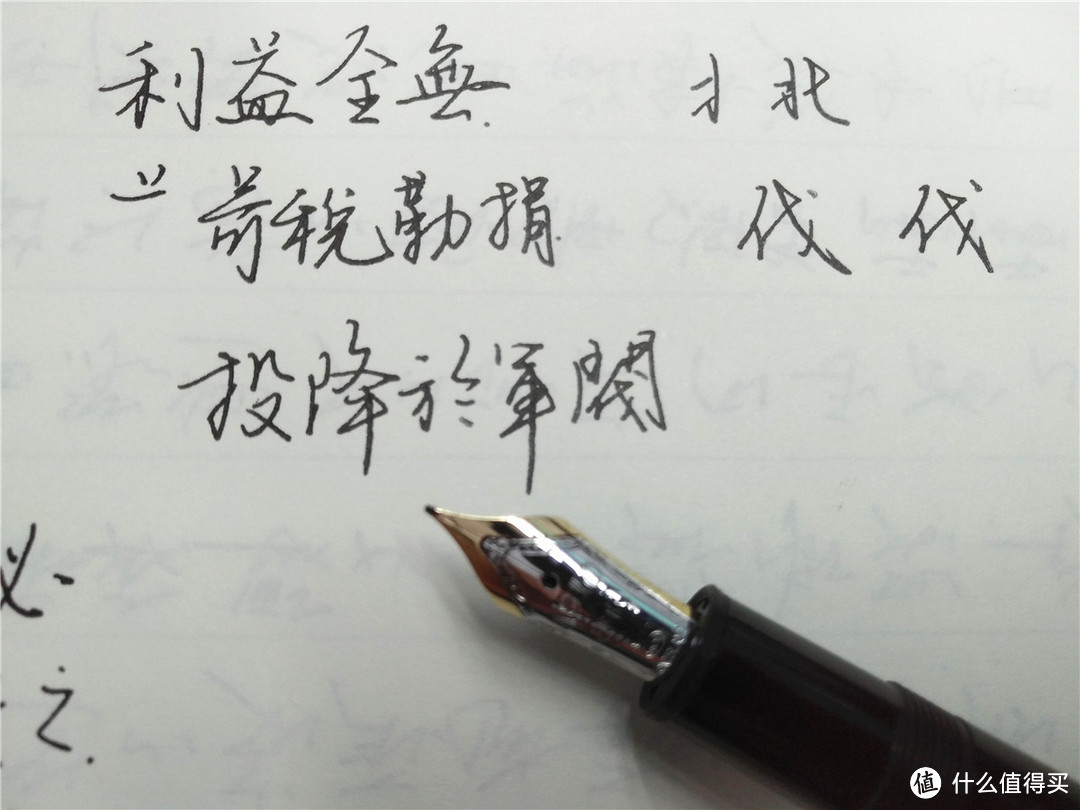 利益全無. 北
苛稅勒捐. 伐 伐
投降於軍閥
必
之.
值 什么值得买